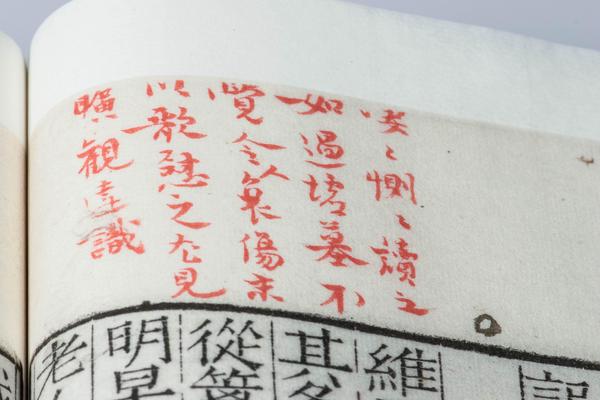 〻惻〻讀之
如過墟墓不
覺令人哀傷末
以歌慰之尤見
曠觀達識
維
其
從
明
老